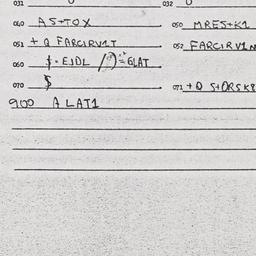 031 0 032 0
040 AS+TOX 050 MRES+K1
051 + Q FARCIRV1T 052 FARCIRV1N
060 $ - EJDL /")=GLAT
070 $ 071 + Q S+ORSK8
900 A LAT1